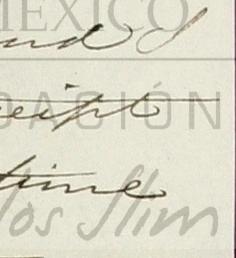 MÉXICO
and I
receipt
DACIÓN
time
los Slim